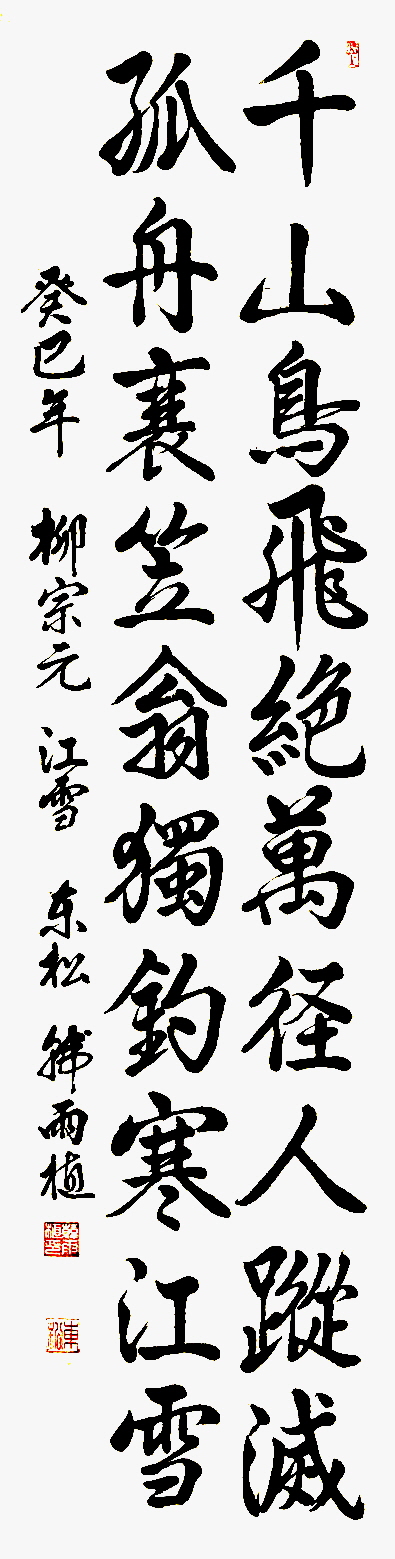 千山鳥飛絶萬径人蹤滅
孤舟蓑笠翁獨釣寒江雪
癸巳年 柳宗元 江雪 东松 韩雨植